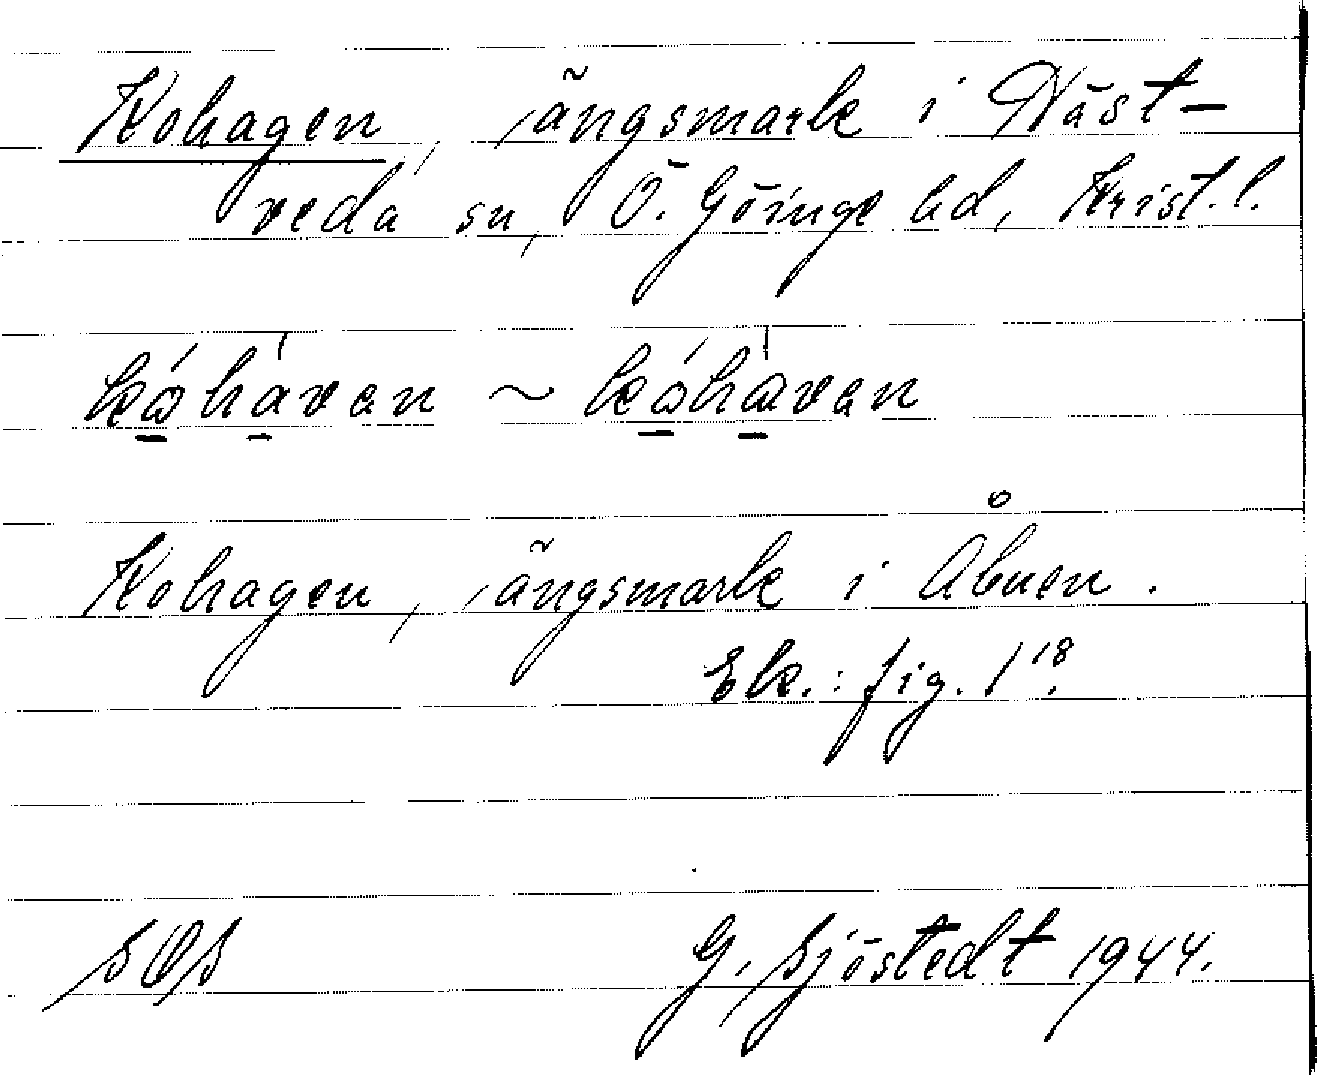 Kohagen, ängsmark i Näst-
veda sn, Ö. Göinge hd, Krist. l.
kóhàvan ~ kóhàvan
Kohagen, ängsmark i Åbuen.
Ek.: fig. 1 18.
SOS
G. Sjöstedt 1944.